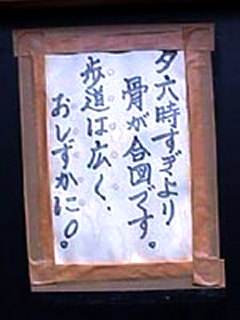 夕六時すぎより
骨が合図です。
歩道は広く、
おしずかに。